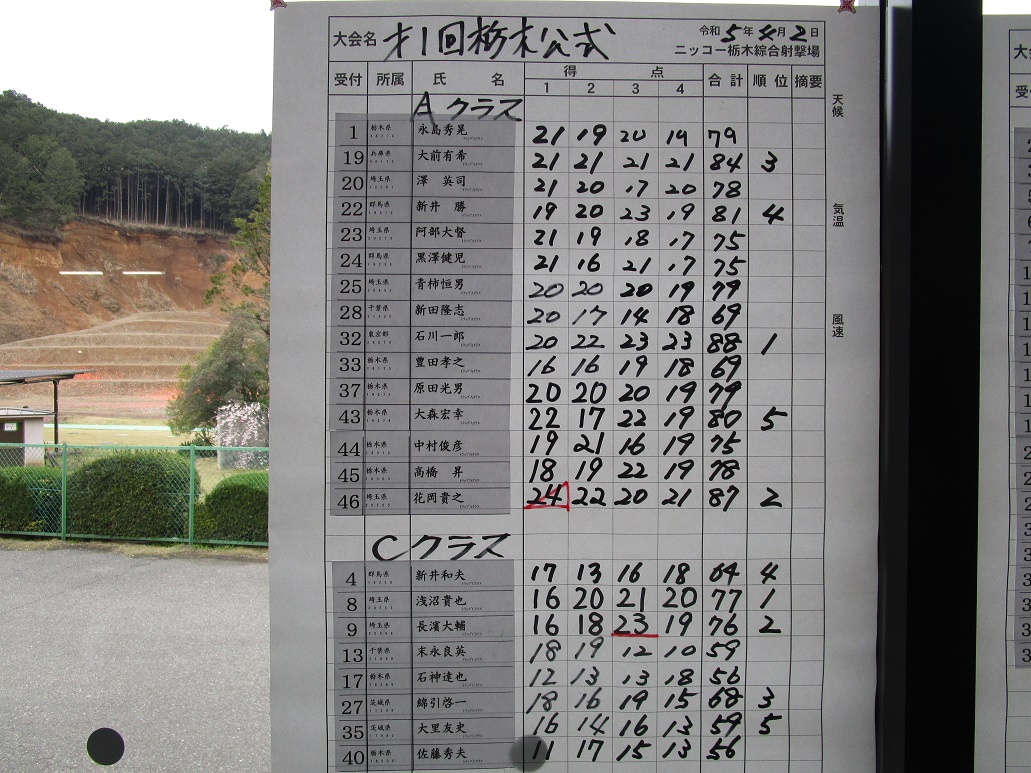 大会名 才1回栃木公式 令和5年4月2日
ニッコー栃木綜合射撃場
受付 所属 氏名 得点 合計 順位 摘要
1 2 3 4
天候
気温
風速
Aクラス
1 栃木県 永島秀晃 21 19 20 19 79
19 兵庫県 大前有希 21 21 21 21 84 3
20 埼玉県 澤 英司 21 20 17 20 78
22 群馬県 新井 勝 19 20 23 19 81 4
23 埼玉県 阿部大督 21 19 18 17 75
24 群馬県 黒澤健児 21 16 21 17 75
25 埼玉県 青柿恒男 20 20 20 19 79
28 千葉県 新田隆志 20 17 14 18 69
32 東京都 石川一郎 20 22 23 23 88 1
33 栃木県 豊田孝之 16 16 19 18 69
37 栃木県 原田光男 20 20 20 19 79
43 栃木県 大森宏幸 22 17 22 19 80 5
44 栃木県 中村俊彦 19 21 16 19 75
45 栃木県 高橋 昇 18 19 22 19 78
46 埼玉県 花岡貴之 24 22 20 21 87 2
Cクラス
4 群馬県 新井和夫 17 13 16 18 64 4
8 埼玉県 浅沼貴也 16 20 21 20 77 1
9 埼玉県 長濱大輔 16 18 23 19 76 2
13 千葉県 末永良英 18 19 12 10 59
17 栃木県 石神達也 12 13 13 18 56
27 茨城県 綿引啓一 18 16 19 15 68 3
35 茨城県 大里友史 16 14 16 13 59 5
40 栃木県 佐藤秀夫 11 17 15 13 56